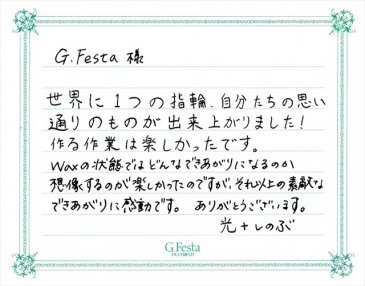 G.Festa 様
世界に1つの指輪、自分たちの思い
通りのものが出来上がりました!
作る作業は楽しかったです。
Waxの状態ではどんなできあがりになるのか
想像するのが楽しかったのですが、それ以上の素敵な
できあがりに感動です。 ありがとうございます。
光+しのぶ
G.Festa
DIAMOND